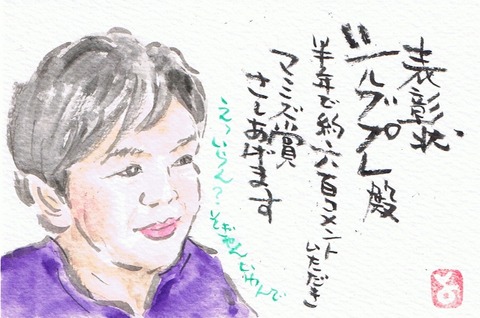 表彰状
シルブプレ殿
半年で約六百コメント
いただき
マミズ賞
さしあげます
えっいらん?
そぎゃんいわんで